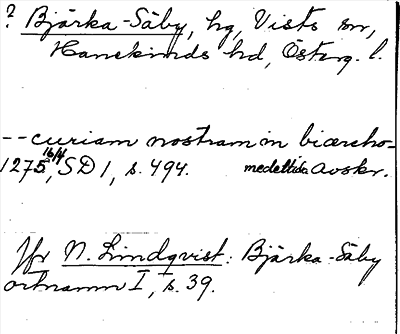 ? Bjärka-Säby, hg, Vists sn,
Hanekinds hd, Österg. l.
-- curiam nostram in biærcho-
1275 16/4, SD 1, s. 494. medeltida Avskr.
Jfr N. Lindqvist: Bjärka-Säby
ortnamn I, s. 39.